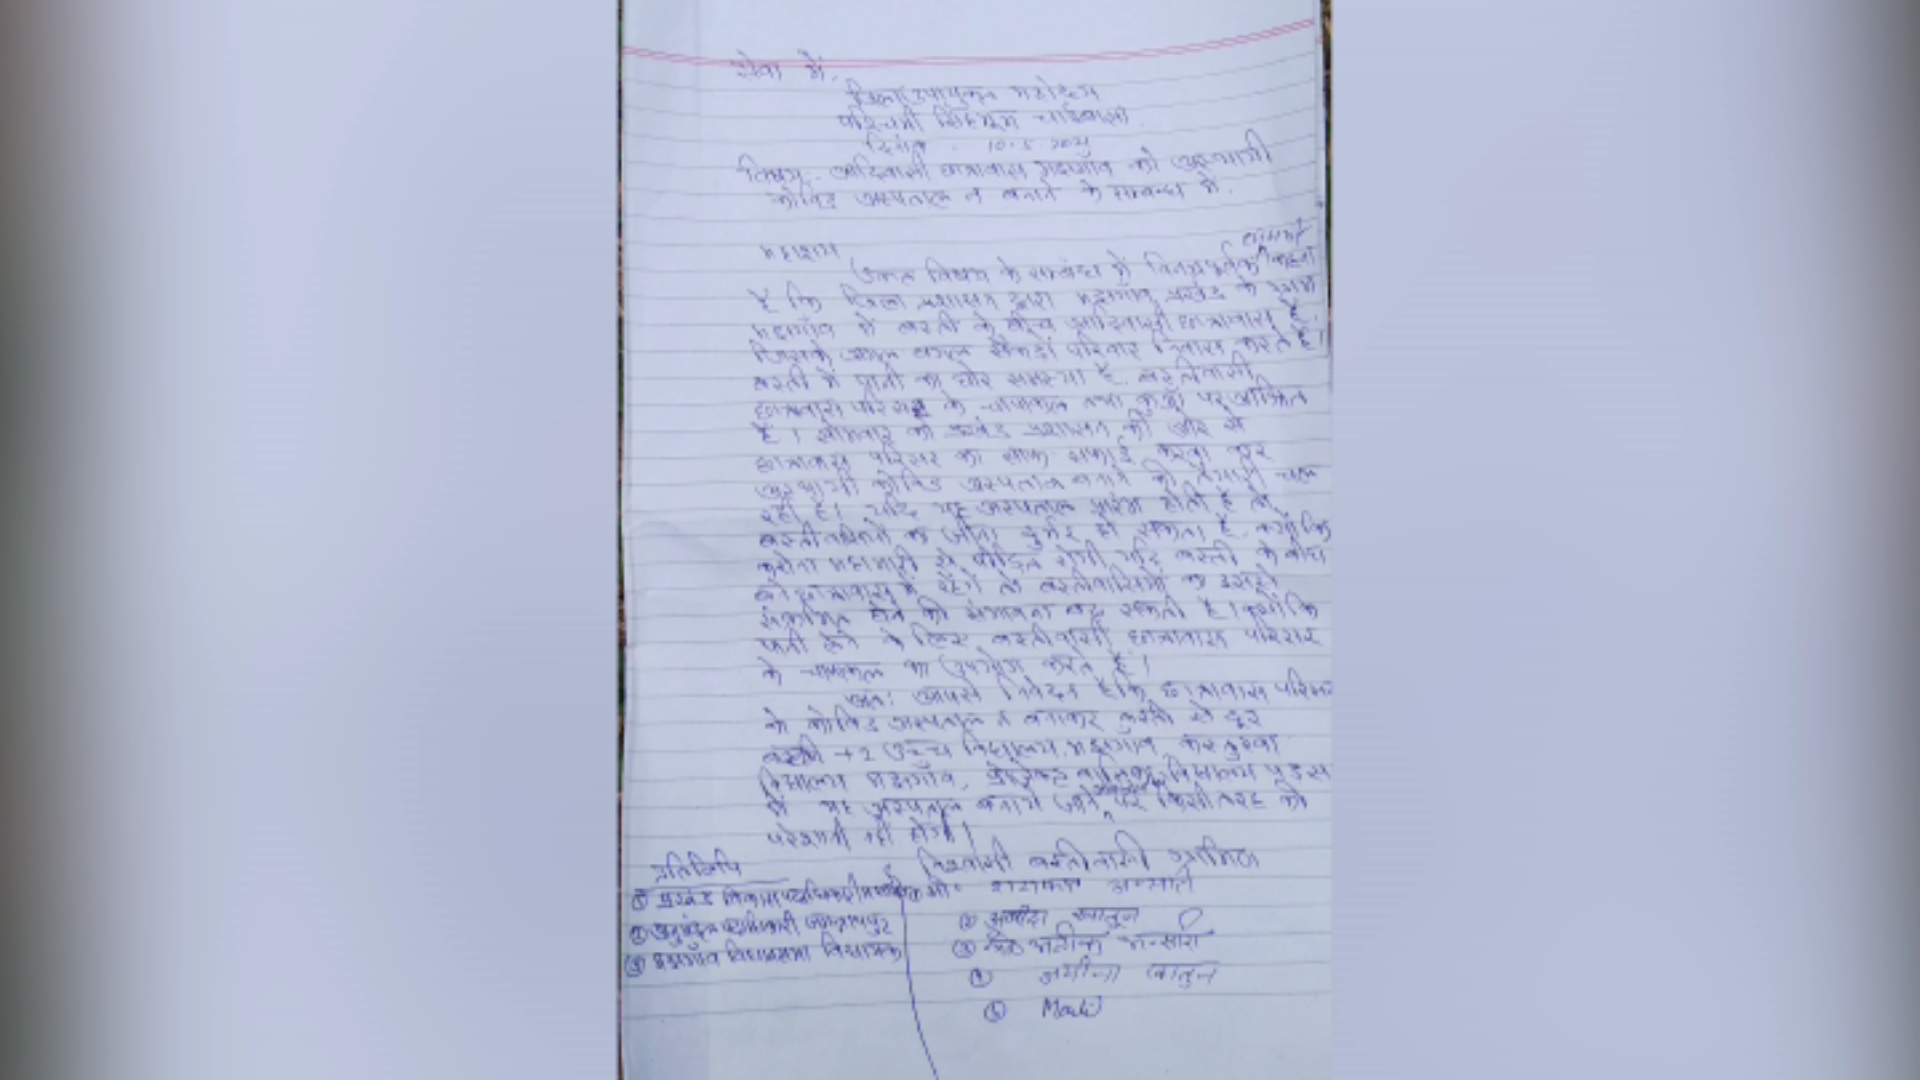 सेवा में,
जिला उपायुक्त महोदय
पश्चिमी सिंहभूम चाईबासा.
दिनांक - 10.5.2021
विषय:- आदिवासी छात्रावास मझगाँव को अस्थायी
कोविड अस्पताल न बनाने के सम्बन्ध में.
महाशय
उक्त विषय के सम्बंध में विनयपूर्वक कहना
है कि जिला प्रशासन द्वारा मझगाँव प्रखंड के ग्राम
मझगाँव में बस्ती के बीच आदिवासी छात्रावास है.
जिसके अगल बगल सैकड़ों परिवार निवास करते हैं।
बस्ती में पानी का घोर समस्या है. बस्तीवासी
छात्रावास परिसर के चापाकल तथा कुआँ पर आश्रित
है। सोमवार को प्रखंड प्रशासन की ओर से
छात्रावास परिसर का साफ सफाई करवा कर
अस्थायी कोविड अस्पताल बनाने की तैयारी चल
रही है। यदि यह अस्पताल प्रारंभ होती है तो
बस्तीवासियों का जीना दुर्भर हो सकता है. क्योंकि
कुरोना महामारी से पीड़ित रोगी यदि बस्ती के बीच
छात्रावास में रहेंगे तो बस्तीवासियों का इससे
संक्रमित होने की संभावना बढ़ सकती है। क्योंकि
पानी लेने के लिए बस्तीवासी छात्रावास परिसर
के चापाकल का उपयोग करते हैं।
अतः आपसे निवेदन है कि छात्रावास परिसर
को कोविड अस्पताल न बनाकर बस्ती से दूर
+2 उच्च विद्यालय मझगाँव, कस्तुरबा
विद्यालय मझगाँव, प्रोजेक्ट बालिका विद्यालय
में यह अस्पताल बनाये जाने पर किसी तरह की
परेशानी नहीं होगी।
प्रतिलिपि
① प्रखंड विकास पदाधिकारी
② अनुमंडल पदाधिकारी जगन्नाथपुर
③ मझगाँव विधानसभा विधायक
बस्तीवासी ग्रामीण
① मो॰
② खातून
③ अन्सारी
④ खातुन
⑤